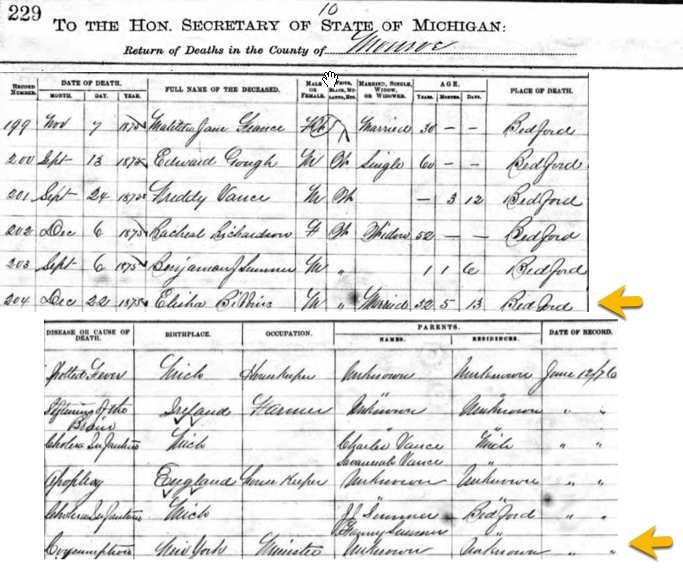 229
10
TO THE HON. SECRETARY OF STATE OF MICHIGAN:
Return of Deaths in the County of Monroe
RECORD NUMBER. DATE OF DEATH. MONTH. DAY. YEAR. FULL NAME OF THE DECEASED. MALE OR FEMALE. WHITE, BLACK, MULATTO, ETC. MARRIED, SINGLE, WIDOW, OR WIDOWER. AGE. YEARS. MONTHS. DAYS. PLACE OF DEATH.
199 Nov 7 1875 Jane Married 30 — — Bedford
200 Sept 13 1875 Edward Gough M Wh Single 60 — — Bedford
201 Sept 24 1875 Freddy Vance M Wh — 3 12 Bedford
202 Dec 6 1875 Racheal Richardson F Wh Widow 52 — — Bedford
203 Sept 6 1875 Benjaman J Sumner M " 1 1 6 Bedford
204 Dec 22 1875 Elisha Bibbins M " Married 32 5 13 Bedford
DISEASE OR CAUSE OF DEATH. BIRTHPLACE. OCCUPATION. PARENTS. NAMES. RESIDENCES. DATE OF RECORD.
Spotted Fever Mich House Keeper Unknown Unknown June 12/76
Softening of the Brain Ireland Farmer Unknown Unknown " "
Cholera Infantum Mich Charles Vance Mich " "
Savannah Vance "
Apoplexy England House Keeper Unknown Unknown " "
Cholera Infantum Mich J J Sumner Bedford " "
Fanny Sumner "
Consumption New York Minister Unknown Unknown " "